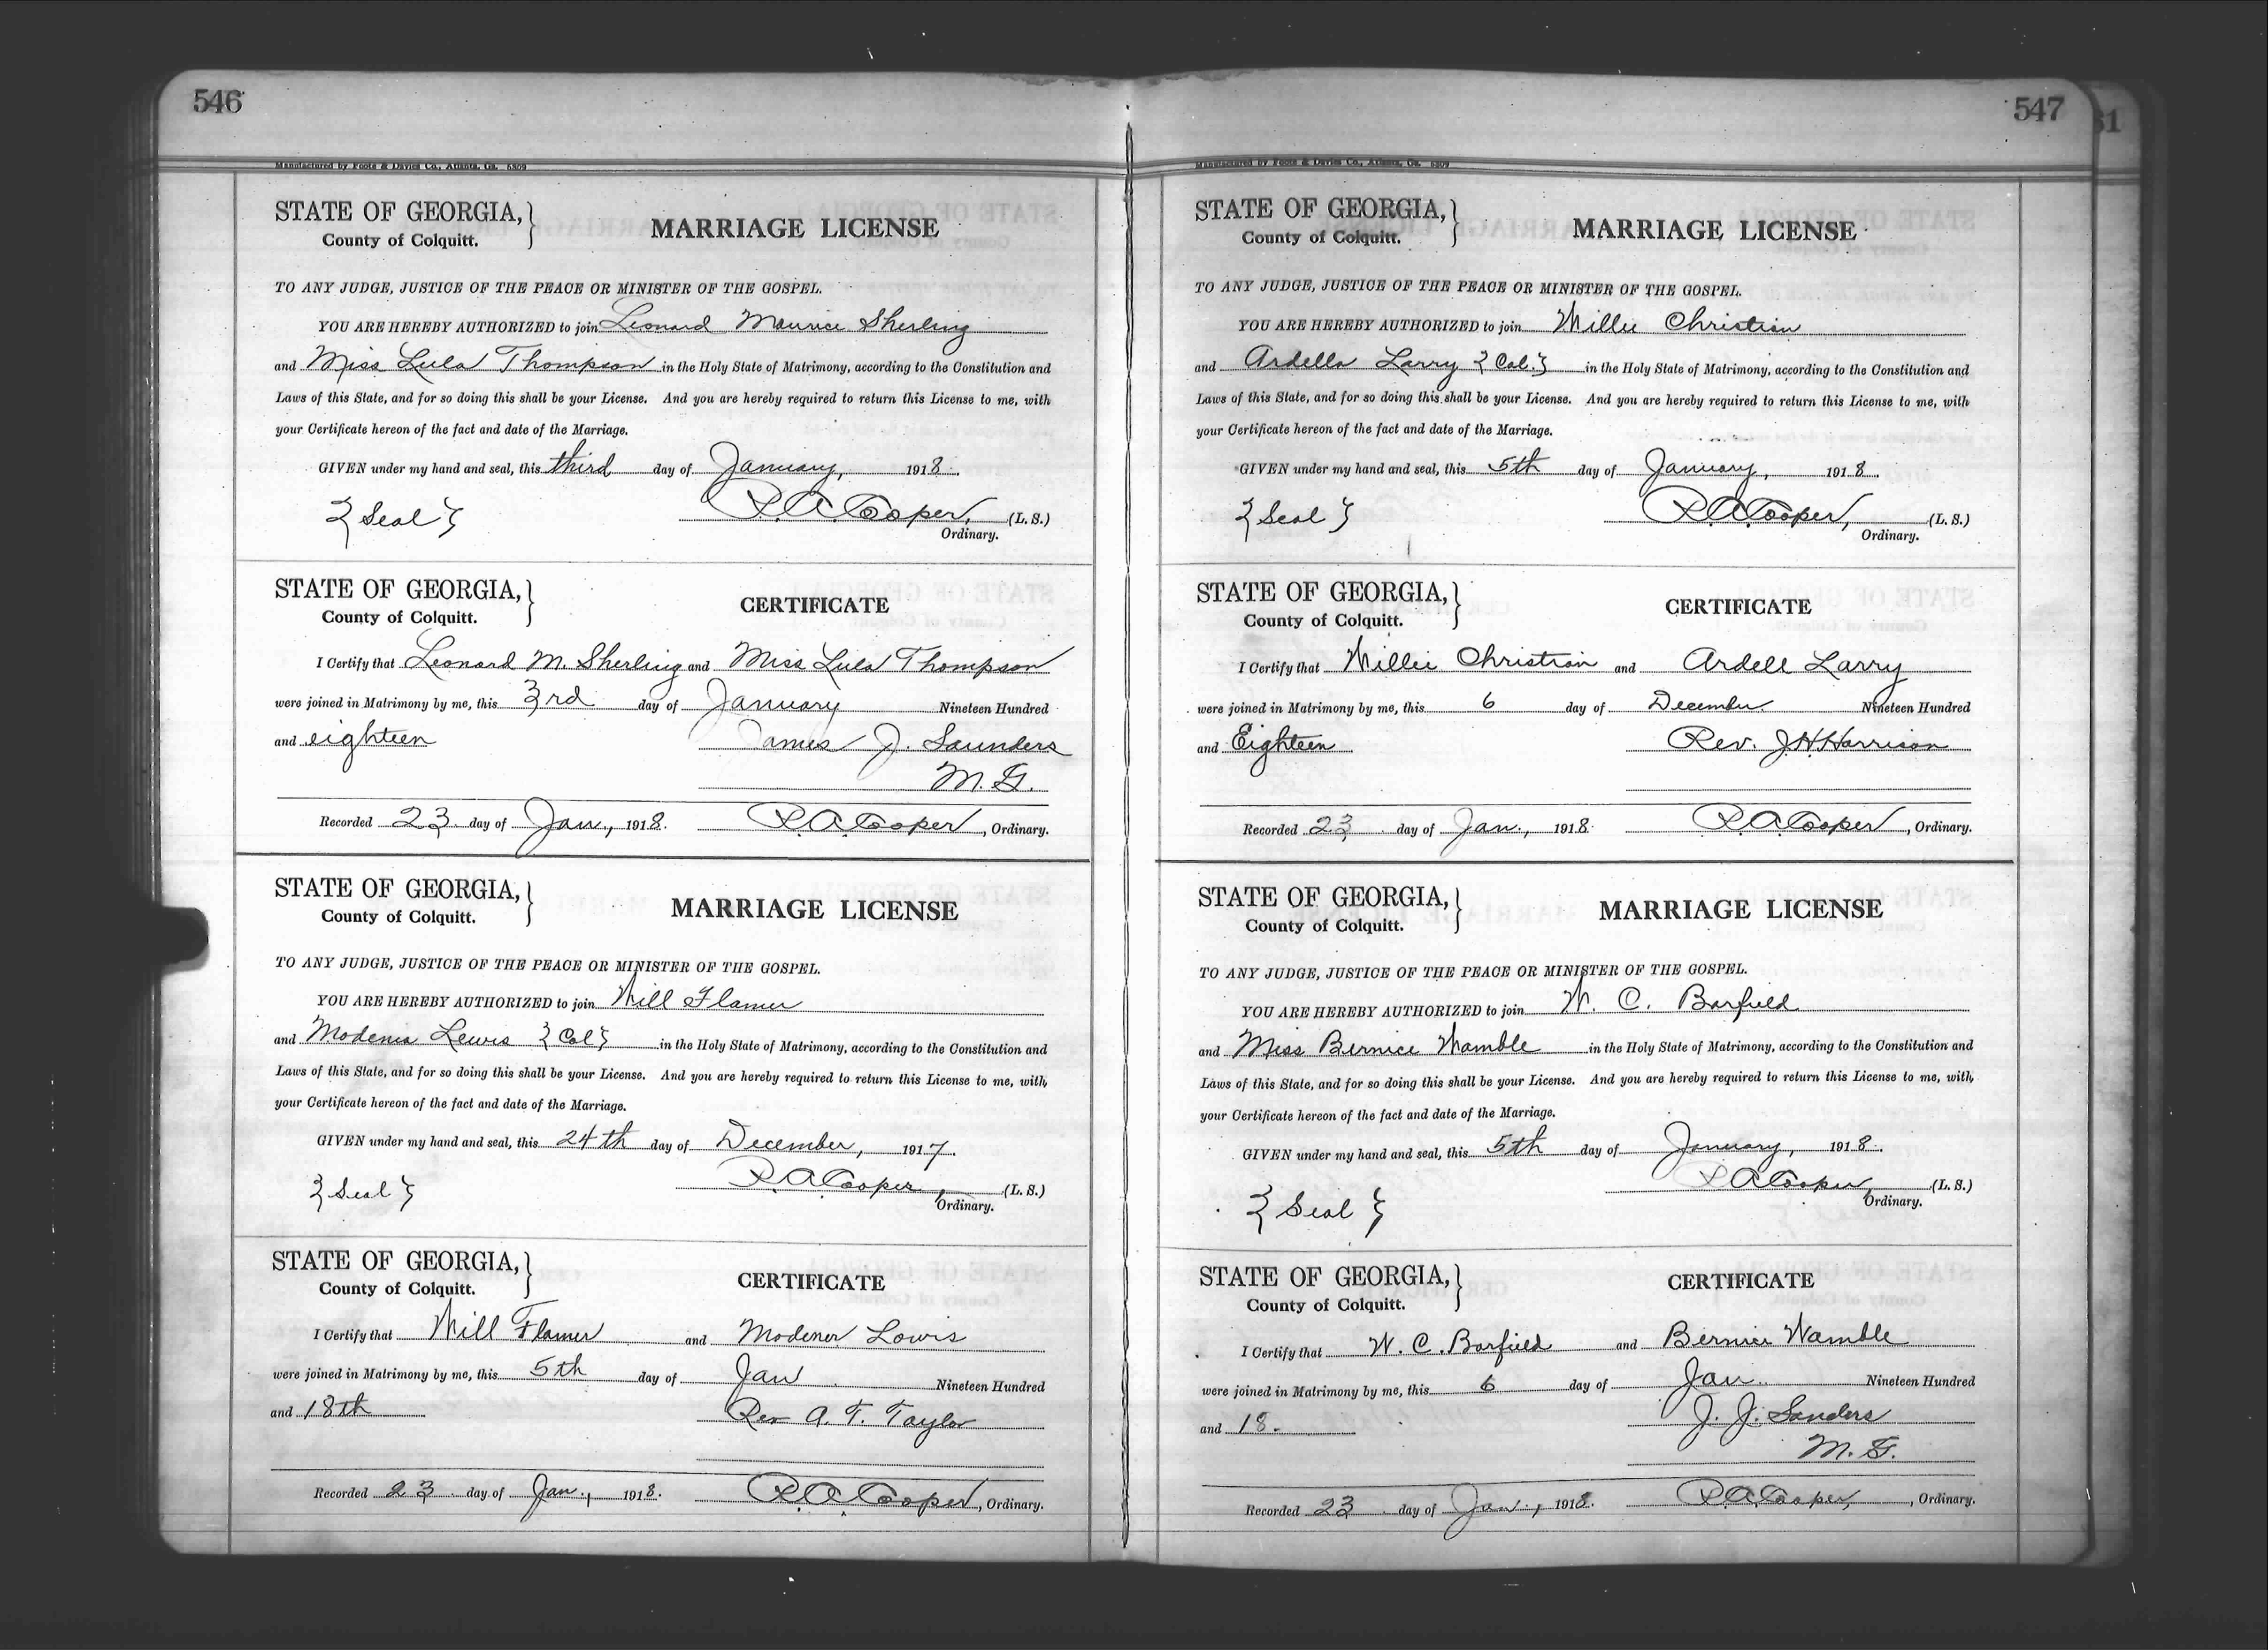 546
Manufactured by Foote & Davies Co., Atlanta, Ga. 6309
STATE OF GEORGIA,
County of Colquitt.
MARRIAGE LICENSE
TO ANY JUDGE, JUSTICE OF THE PEACE OR MINISTER OF THE GOSPEL.
YOU ARE HEREBY AUTHORIZED to join Leonard Maurice Sherling
and Miss Lula Thompson in the Holy State of Matrimony, according to the Constitution and
Laws of this State, and for so doing this shall be your License. And you are hereby required to return this License to me, with
your Certificate hereon of the fact and date of the Marriage.
GIVEN under my hand and seal, this third day of January, 1918.
{Seal} R.A. Cooper, (L. S.)
Ordinary.
STATE OF GEORGIA,
County of Colquitt.
CERTIFICATE
I Certify that Leonard M. Sherling and Miss Lula Thompson
were joined in Matrimony by me, this 3rd day of January Nineteen Hundred
and eighteen James J. Saunders
M. G.
Recorded 23 day of Jan., 1918. R.A. Cooper, Ordinary.
STATE OF GEORGIA,
County of Colquitt.
MARRIAGE LICENSE
TO ANY JUDGE, JUSTICE OF THE PEACE OR MINISTER OF THE GOSPEL.
YOU ARE HEREBY AUTHORIZED to join Will Flamer
and Modenia Lewis {Col} in the Holy State of Matrimony, according to the Constitution and
Laws of this State, and for so doing this shall be your License. And you are hereby required to return this License to me, with
your Certificate hereon of the fact and date of the Marriage.
GIVEN under my hand and seal, this 24th day of December, 1917.
{Seal} R.A. Cooper, (L. S.)
Ordinary.
STATE OF GEORGIA,
County of Colquitt.
CERTIFICATE
I Certify that Will Flamer and Modener Lowis
were joined in Matrimony by me, this 5th day of Jan Nineteen Hundred
and 18th Rev A. T. Taylor
Recorded 23 day of Jan., 1918. R.A. Cooper, Ordinary.
547
51
Manufactured by Foote & Davies Co., Atlanta, Ga. 6309
STATE OF GEORGIA,
County of Colquitt.
MARRIAGE LICENSE
TO ANY JUDGE, JUSTICE OF THE PEACE OR MINISTER OF THE GOSPEL.
YOU ARE HEREBY AUTHORIZED to join Willie Christian
and Ardella Larry {Col.} in the Holy State of Matrimony, according to the Constitution and
Laws of this State, and for so doing this shall be your License. And you are hereby required to return this License to me, with
your Certificate hereon of the fact and date of the Marriage.
GIVEN under my hand and seal, this 5th day of January, 1918.
{Seal} R.A. Cooper, (L. S.)
Ordinary.
STATE OF GEORGIA,
County of Colquitt.
CERTIFICATE
I Certify that Willie Christian and Ardell Larry
were joined in Matrimony by me, this 6 day of December Nineteen Hundred
and Eighteen Rev. J.H. Harrison
Recorded 23 day of Jan., 1918. R.A. Cooper, Ordinary.
STATE OF GEORGIA,
County of Colquitt.
MARRIAGE LICENSE
TO ANY JUDGE, JUSTICE OF THE PEACE OR MINISTER OF THE GOSPEL.
YOU ARE HEREBY AUTHORIZED to join W. C. Barfield
and Miss Bernice Wamble in the Holy State of Matrimony, according to the Constitution and
Laws of this State, and for so doing this shall be your License. And you are hereby required to return this License to me, with
your Certificate hereon of the fact and date of the Marriage.
GIVEN under my hand and seal, this 5th day of January, 1918.
{Seal} R.A. Cooper, (L. S.)
Ordinary.
STATE OF GEORGIA,
County of Colquitt.
CERTIFICATE
I Certify that W. C. Barfield and Bernice Wamble
were joined in Matrimony by me, this 6 day of Jan. Nineteen Hundred
and 18. J. J. Sanders
M. G.
Recorded 23 day of Jan., 1918. R.A. Cooper, Ordinary.